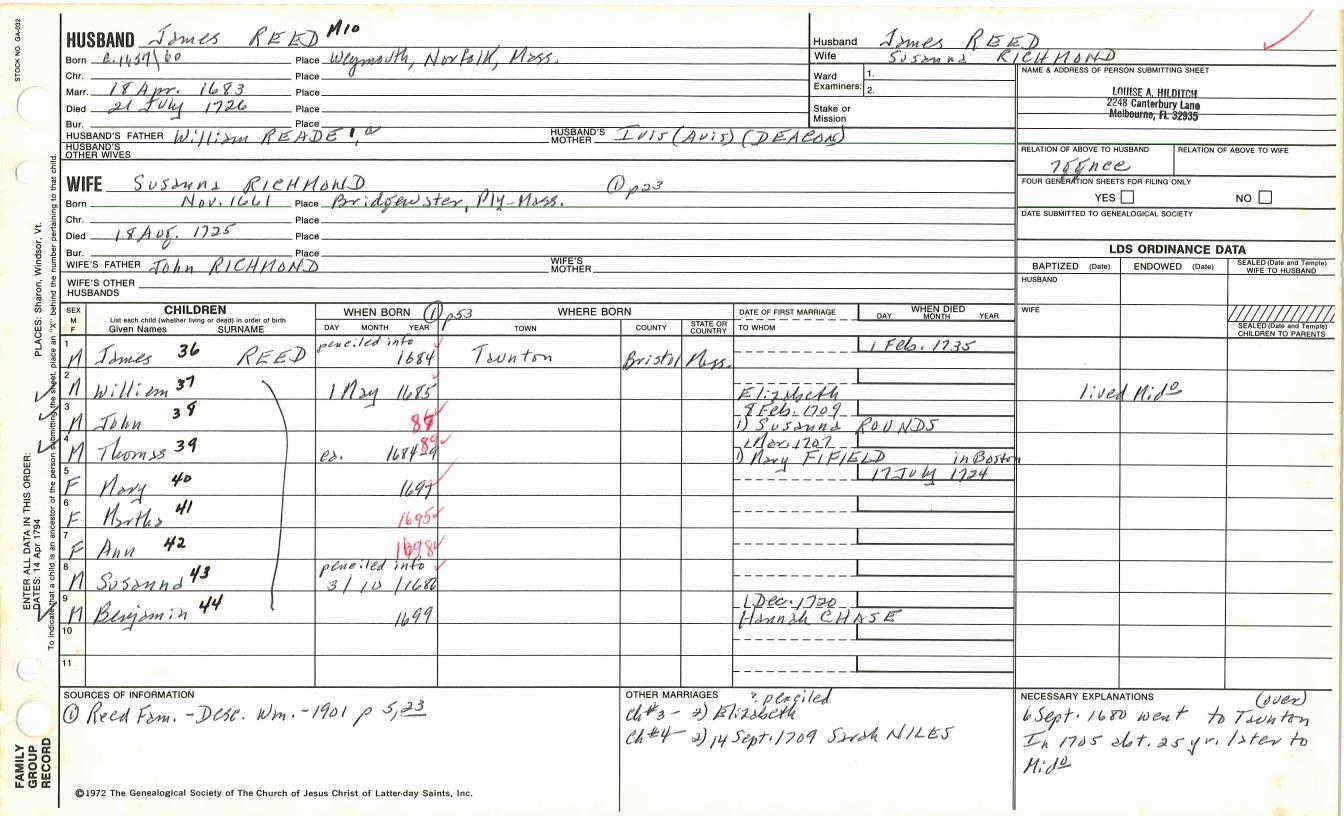 STOCK NO. GA-032
HUSBAND James REED M10
Born c.1657\60 Place Weymouth, Norfolk, Mass.
Chr. Place
Marr. 18 Apr. 1683 Place
Died 21 July 1726 Place
Bur. Place
HUSBAND'S FATHER William READE HUSBAND'S MOTHER IVIS (AVIS) (DEACON)
HUSBAND'S OTHER WIVES
Husband James REED
Wife Susanna RICHMOND
Ward Examiners: 1.
2.
Stake or Mission
NAME & ADDRESS OF PERSON SUBMITTING SHEET
LOUISE A. HILDITCH
2248 Canterbury Lane
Melbourne, FL 32935
RELATION OF ABOVE TO HUSBAND RELATION OF ABOVE TO WIFE
FOUR GENERATION SHEETS FOR FILING ONLY
YES NO
DATE SUBMITTED TO GENEALOGICAL SOCIETY
WIFE Susanna RICHMOND ① p23
Born Nov. 1661 Place Bridgewater, Ply-Mass.
Chr. Place
Died 18 Aug. 1725 Place
Bur. Place
WIFE'S FATHER John RICHMOND WIFE'S MOTHER
WIFE'S OTHER HUSBANDS
LDS ORDINANCE DATA
BAPTIZED (Date) ENDOWED (Date) SEALED (Date and Temple) WIFE TO HUSBAND
HUSBAND
WIFE
SEALED (Date and Temple) CHILDREN TO PARENTS
SEX M F CHILDREN WHEN BORN ① p53 WHERE BORN DATE OF FIRST MARRIAGE WHEN DIED
List each child (whether living or dead) in order of birth
Given Names SURNAME DAY MONTH YEAR TOWN COUNTY STATE OR COUNTRY TO WHOM DAY MONTH YEAR
1 M James 36 REED penciled info 1684 Taunton Bristol Mass. 1 Feb. 1735
2 M William 37 1 May 1685 Elizabeth lived Mido
3 M John 38 8 Feb. 1709
1) Susanna ROUNDS
4 M Thomas 39 ca. 1 Mar. 1707
1) Mary FIFIELD in Boston
5 F Mary 40 17 July 1724
6 F Martha 41 1695
7 F Ann 42 1698
8 M Susanna 43 penciled info
3/10/1686
9 M Benjamin 44 1699 1 Dec. 1720
Hannah CHASE
10
11
SOURCES OF INFORMATION
① Reed Fam. - Desc. Wm. - 1901 p 5, 23
OTHER MARRIAGES ? penciled
ch #3 - 2) Elizabeth
ch #4 - 2) 14 Sept. 1709 Sarah NILES
NECESSARY EXPLANATIONS (over)
6 Sept. 1680 went to Taunton
In 1705 abt. 25 yr. later to
Mido
©1972 The Genealogical Society of The Church of Jesus Christ of Latter-day Saints, Inc.
FAMILY GROUP RECORD
ENTER ALL DATA IN THIS ORDER:
DATES: 14 Apr 1794
PLACES: Sharon, Windsor, Vt.
To indicate that a child is an ancestor of the person submitting the sheet, place an "X" behind the number pertaining to that child.